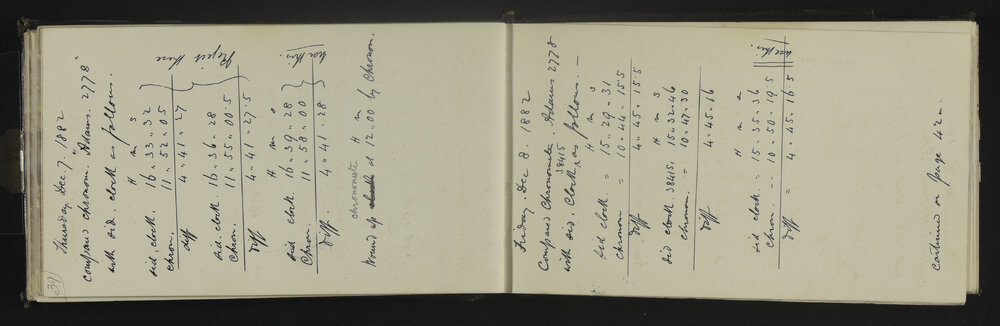 39
Thursday. Dec 7. 1882
Compared chronom. "Adams. 2778"
with sid. clock as follows.
H m s
sid. clock. 16 " 33 " 32
chron. 11 " 52 " 05
diff 4 " 41 " 27
sid. clock 16 " 36 " 28
chron. 11 " 55 " 00.5
diff 4 " 41 " 27.5
Reject these
H m s
sid clock. 16 " 39 " 28
Chron. 11 " 58 " 00
diff. 4 " 41 " 28
use this
chronometer H m
Wound up at 12 " 00 by Chronom.
Friday. Dec 8. 1882
Compared Chronometer. Adams 2778
38415
with sid. Clock, as follows. —
H m s
sid clock = 15 " 29 " 31
chronom = 10 " 44 " 15.5
diff 4 " 45 " 15.5
H m s
sid clock 38415, 15 " 32 " 46
chronom. = 10 " 47 " 30
diff 4 " 45 " 16
H m s
sid clock = 15 " 35 " 36
chron. = 10 " 50 " 19.5
diff = 4 " 45 " 16.5
use this
continued on page 42